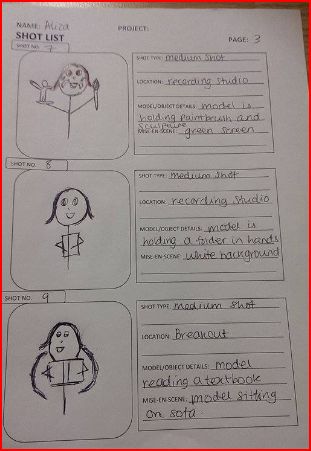 NAME: Aliza
PROJECT:
SHOT LIST
PAGE: 3
SHOT NO. 7
SHOT TYPE: medium shot
LOCATION: recording studio
MODEL/OBJECT DETAILS: model is
holding paintbrush and
sculpture
MISE-EN-SCENE: green screen
SHOT NO. 8
SHOT TYPE: medium shot
LOCATION: recording studio
MODEL/OBJECT DETAILS: model is
holding a folder in hands
MISE-EN-SCENE: white background
SHOT NO. 9
SHOT TYPE: medium shot
LOCATION: Breakout
MODEL/OBJECT DETAILS: model
reading a textbook
MISE-EN-SCENE: model sitting
on sofa